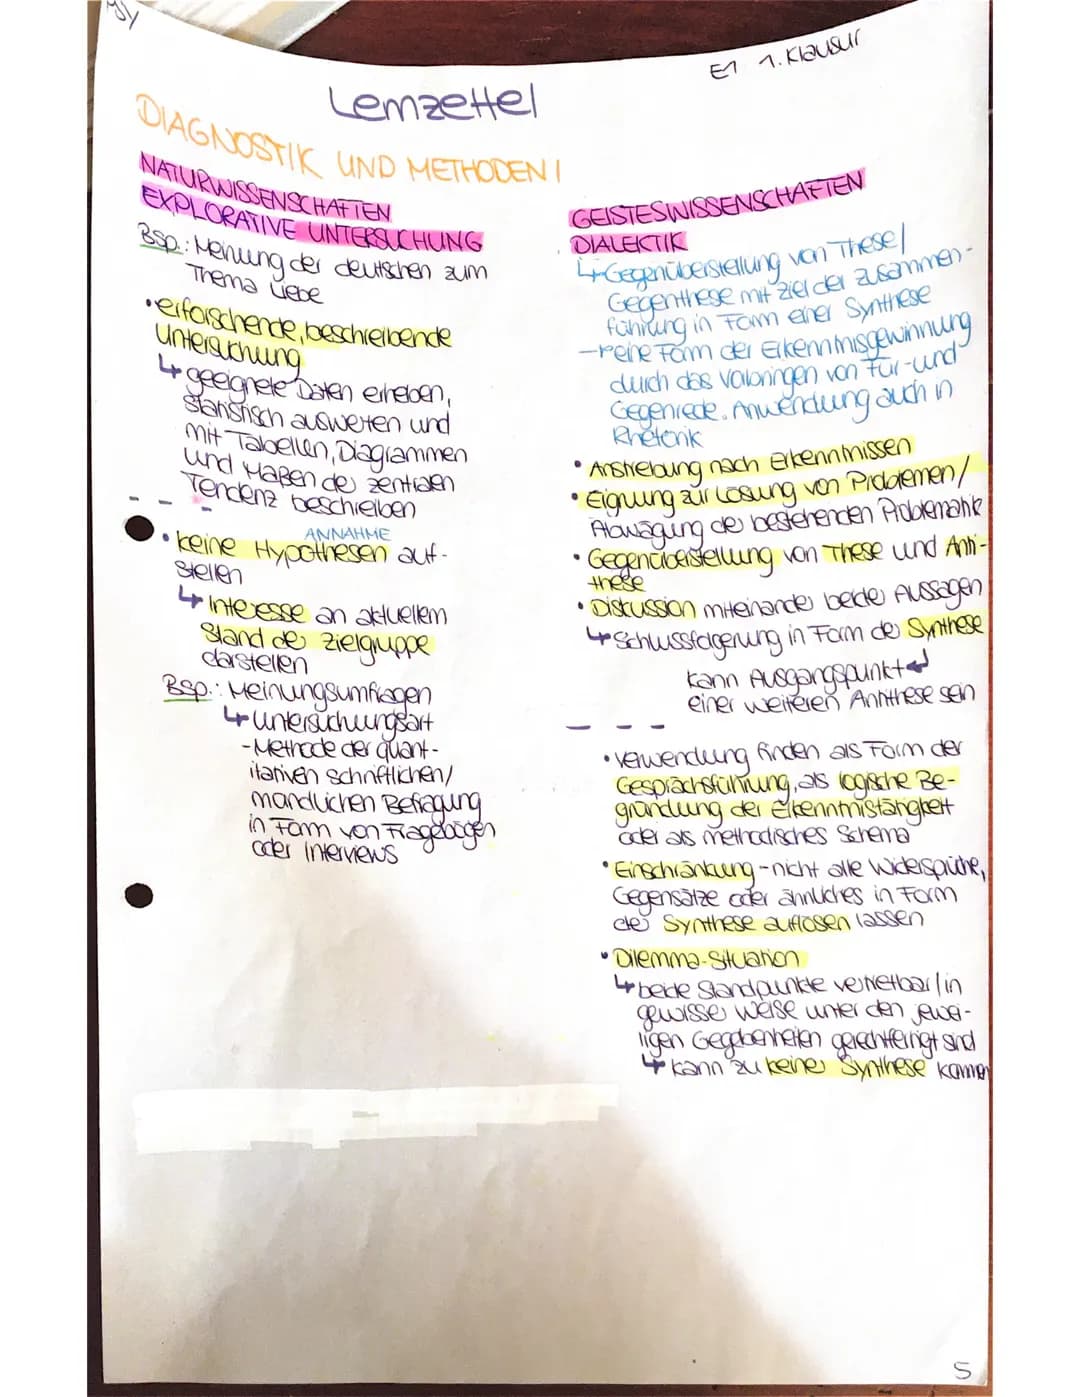 PSY
E1 1. Klausur
Lernzettel
DIAGNOSTIK UND METHODEN I
NATURWISSENSCHAFTEN
EXPLORATIVE UNTERSUCHUNG
Bsp.: Meinung der deutschen zum
Thema Liebe
• erforschende, beschreibende
Untersuchung
↳ geeignete Daten erheben,
statistisch auswerten und
mit Tabellen, Diagrammen
und Maßen der zentralen
Tendenz beschreiben
ANNAHME
• keine Hypothesen auf-
stellen
↳ Interesse an aktuellem
Stand der Zielgruppe
darstellen
Bsp.: Meinungsumfragen
↳ Untersuchungsart
- Methode der quant-
itativen schriftlichen/
mündlichen Befragung
in Form von Fragebögen
oder Interviews
GEISTESWISSENSCHAFTEN
DIALEKTIK
↳ Gegenüberstellung von These/
Gegenthese mit Ziel der Zusammen-
führung in Form einer Synthese
- reine Form der Erkenntnisgewinnung
durch das Vorbringen von Für- und
Gegenrede. Anwendung auch in
Rhetorik
• Anstrebung nach Erkenntnissen
• Eignung zur Lösung von Problemen/
Abwägung der bestehenden Problematik
• Gegenüberstellung von These und Anti-
these
• Diskussion miteinander beider Aussagen
↳ Schlussfolgerung in Form der Synthese
kann Ausgangspunkt ↲
einer weiteren Antithese sein
• Verwendung finden als Form der
Gesprächsführung, als logische Be-
gründung der Erkenntnistätigkeit
oder als methodisches Schema
• Einschränkung - nicht alle Widersprüche,
Gegensätze oder ähnliches in Form
der Synthese auflösen lassen
• Dilemma-Situation
↳ beide Standpunkte vertretbar/in
gewisser Weise unter den jewei-
ligen Gegebenheiten gerechtfertigt sind
↳ kann zu keiner Synthese kommen
5